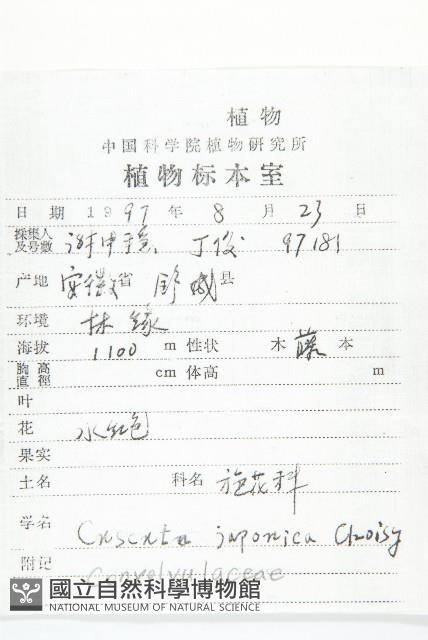 植物
中国科学院植物研究所
植物标本室
日期 1997 年 8 月 23 日
採集人及号數 谢中稳、丁俊 97181
产地 安徽省 舒城县
环境 林缘
海拔 1100 m 性状 木 藤 本
胸高直徑 cm 体高 m
叶
花 水红色
果实
土名 科名 旋花科
学名 Cuscuta japonica Choisy
附记 Convolvulaceae
國立自然科學博物館
NATIONAL MUSEUM OF NATURAL SCIENCE